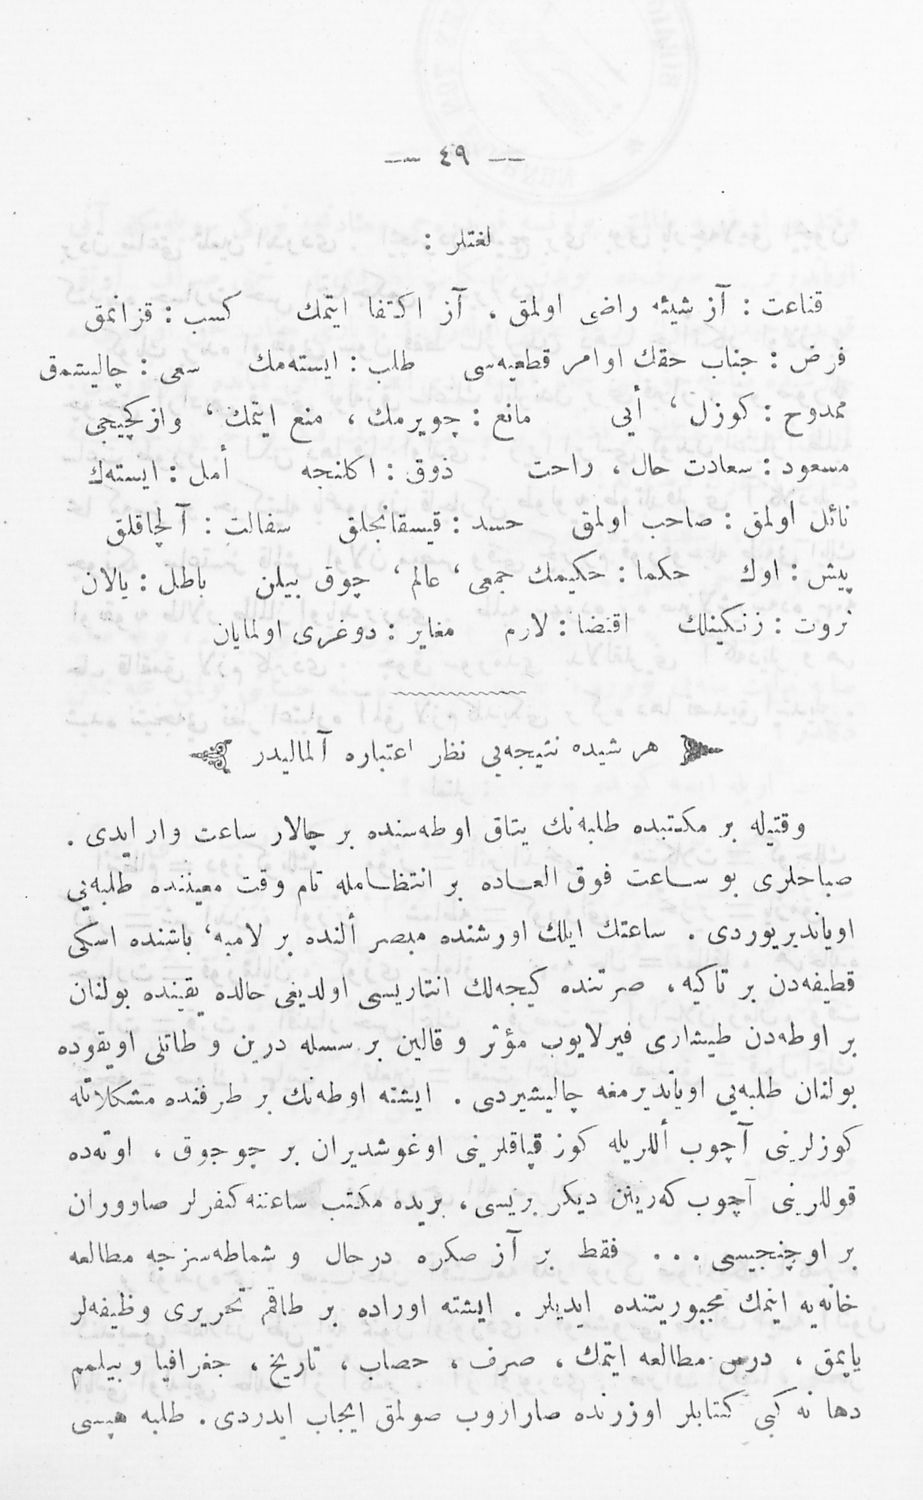 — ٤٩ —
لغتلر :
قناعت : آز شيئه راضی اولمق ، آز اكتفا ايتمك كسب : قزانمق
فرض : جناب حقك اوامر قطعيه‌سی طلب : ايسته‌مك سعی : چاليشمق
ممدوح : كوزل ، أيی مانع : چويرمك ، منع ايتمك ، وازكچيجی
مسعود : سعادت حال ، راحت ذوق : اكلنجه أمل : ايسته‌ك
نائل اولمق : صاحب اولمق حسد : قيسقانجلق سفالت : آلچاقلق
پيش : اوك حكما : حكيمك جمعی ، عالم ، چوق بيلن باطل : يالان
ثروت : زنكينلك اقتضا : لازم مغاير : دوغری اولمايان
هر شيده نتيجه‌يی نظر اعتباره آلماليدر
وقتيله بر مكتبده طلبه‌نك يتاق اوطه‌سنده بر چالار ساعت وار ايدی .
صباحلری بو ساعت فوق العاده بر انتظامله تام وقت معيننده طلبه‌يی
اويانديريوردی . ساعتك ايلك اورشنده مبصر ألنده بر لامبه ، باشنده اسكی
قطيفه‌دن بر تاكيه ، صرتنده كيجه‌لك انتاريسی اولديغی حالده يقينده بولنان
بر اوطه‌دن طيشاری فيرلايوب مؤثر و قالين بر سسله درين و طاتلی اويقوده
بولنان طلبه‌يی اويانديرمغه چاليشيردی . ايشته اوطه‌نك بر طرفنده مشكلاتله
كوزلرينی آچوب أللريله كوز قپاقلرينی اوغوشديران بر چوجوق ، اوته‌ده
قوللرينی آچوب كه‌رينن ديكر بريسی ، بريده مكتب ساعتنه كفرلر صاووران
بر اوچنجيسی ... فقط بر آز صكره درحال و شماطه‌سزجه مطالعه
خانه‌يه اينمك مجبوريتنده ايديلر . ايشته اوراده بر طاقم تحريری وظيفه‌لر
ياپمق ، درس مطالعه ايتمك ، صرف ، حصاب ، تاريخ ، جغرافيا و بيلمم
دها نه كبی كتابلر اوزرنده صاراروب صولمق ايجاب ايدردی . طلبه هپسی